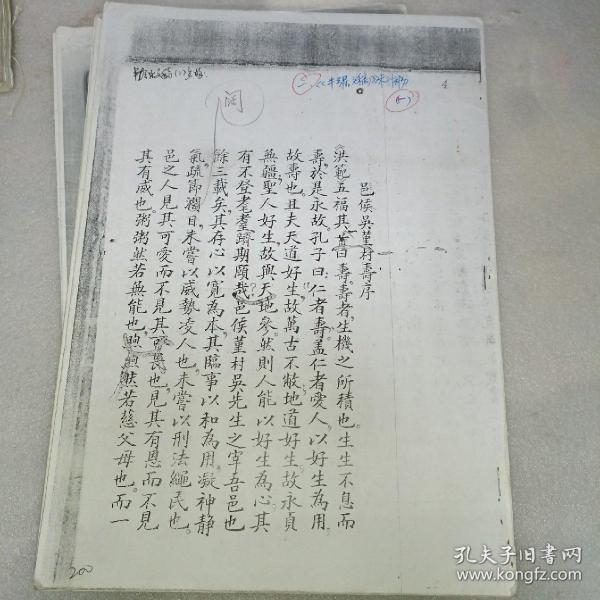 4
邑侯吳堇村壽序
洪範五福其一曰壽。壽者，生機之所積也。生生不息而
壽，於是永故。孔子曰：仁者壽。蓋仁者愛人，以好生為用，
故壽也。且夫天道好生，故萬古不敝，地道好生，故永貞
無疆，聖人好生，故與天地參。然則人能以好生為心，其
有不登耄耋躋期頤哉。邑侯堇村吳先生之宰吾邑也
餘三載矣，其存心以寬為本，其臨事以和為用。凝神靜
氣，疏節濶目，未嘗以威勢凌人也。未嘗以刑法繩民也。
邑之人見其可愛而不見其可畏也，見其有恩而不見
其有威也。粥粥然若無能也，煦煦然若慈父母也。而一
200
孔夫子旧书网
www.kongfz.com